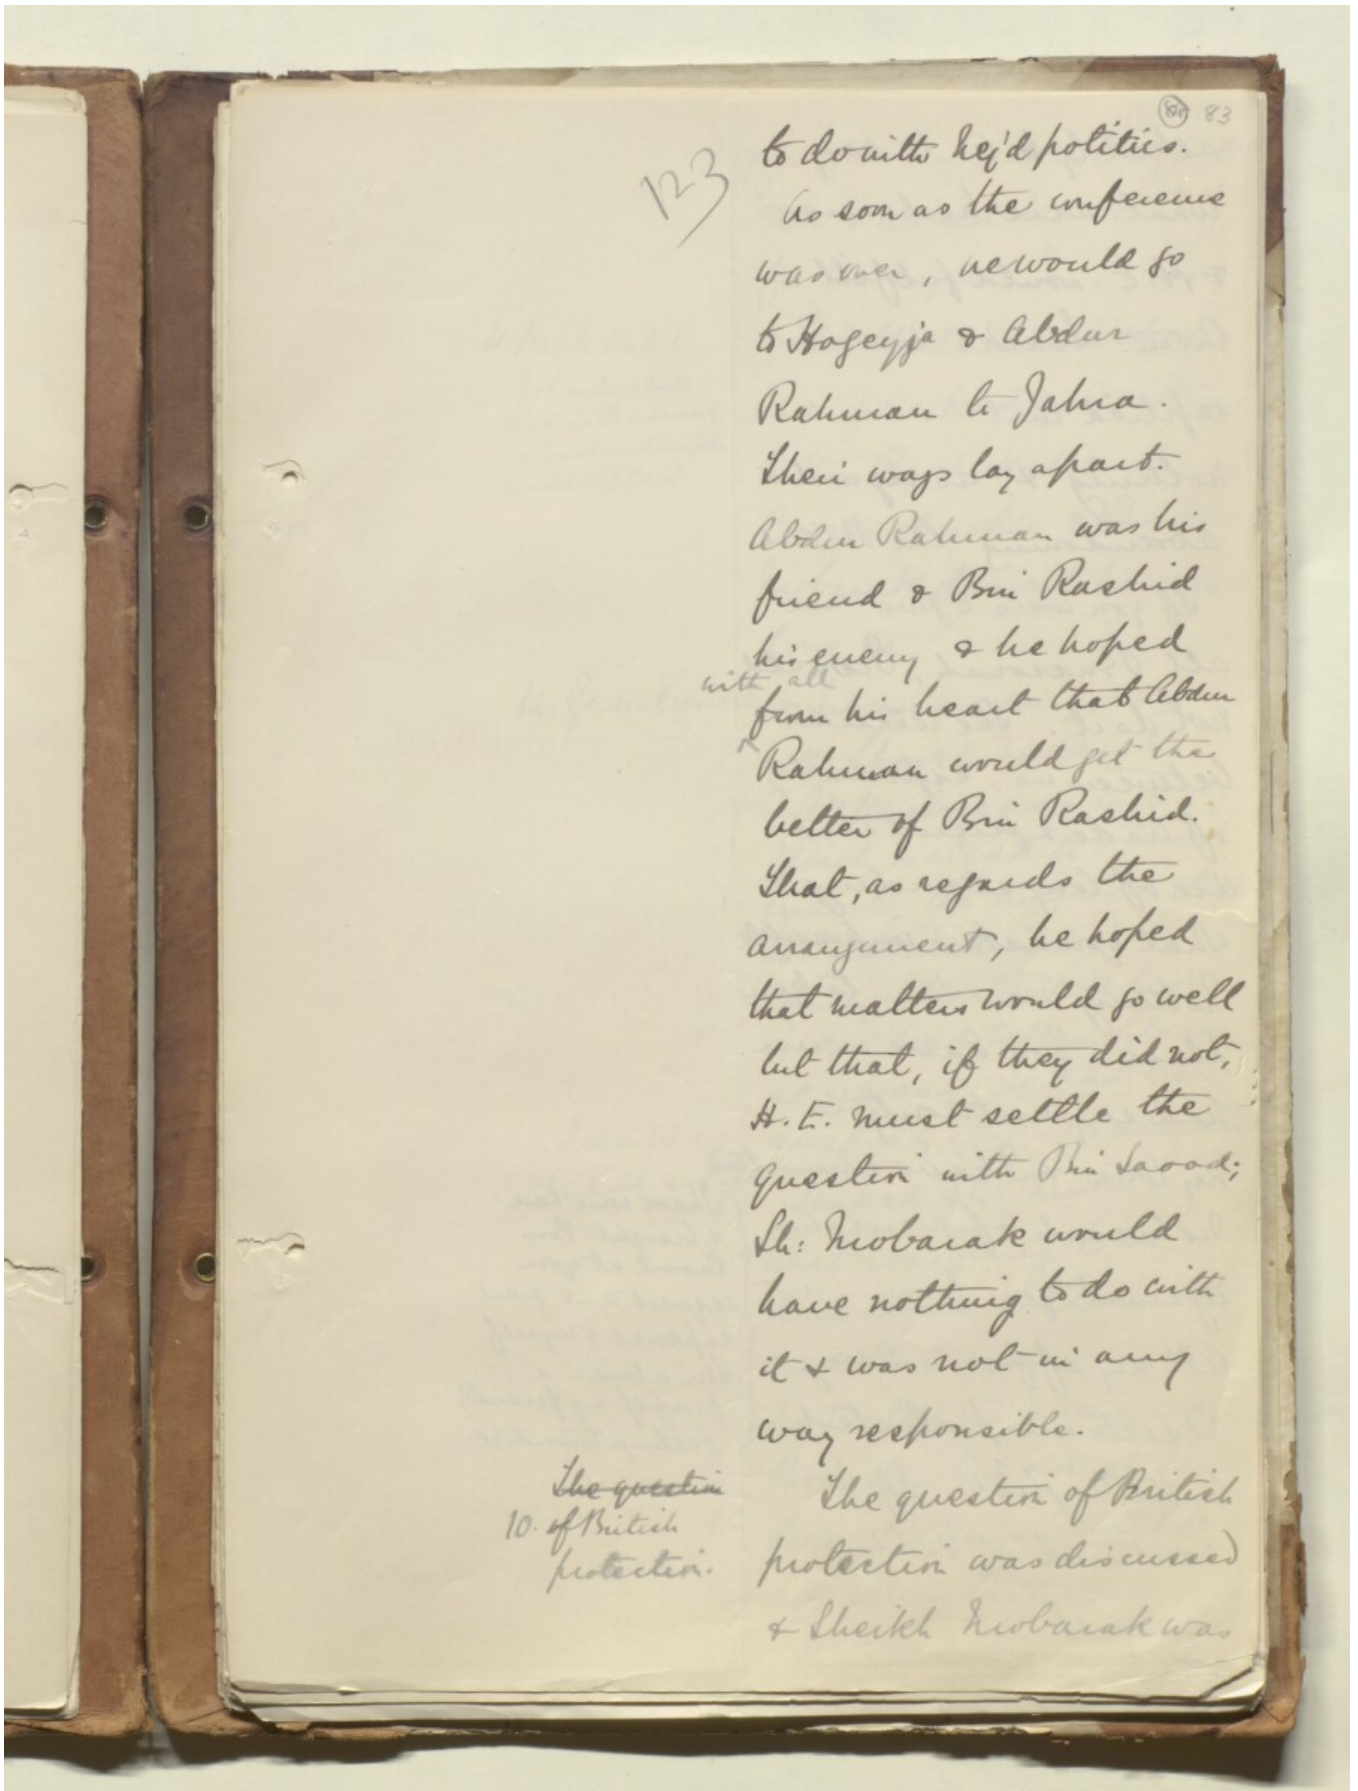 83
123
to do with Nej'd politics.
As soon as the conference
was over, he would go
to Hageyja & Abdur
Rahman to Jahra.
Their ways lay apart.
Abdur Rahman was his
friend & Bin Rashid
his enemy & he hoped
with all
from his heart that Abdur
Rahman would get the
better of Bin Rashid.
That, as regards the
arrangement, he hoped
that matters would go well
but that, if they did not,
H. E. must settle the
question with Bin Saood;
Sh: Mobarak would
have nothing to do with
it & was not in any
way responsible.
The question
10. of British
protection.
The question of British
protection was discussed
& Sheikh Mobarak was